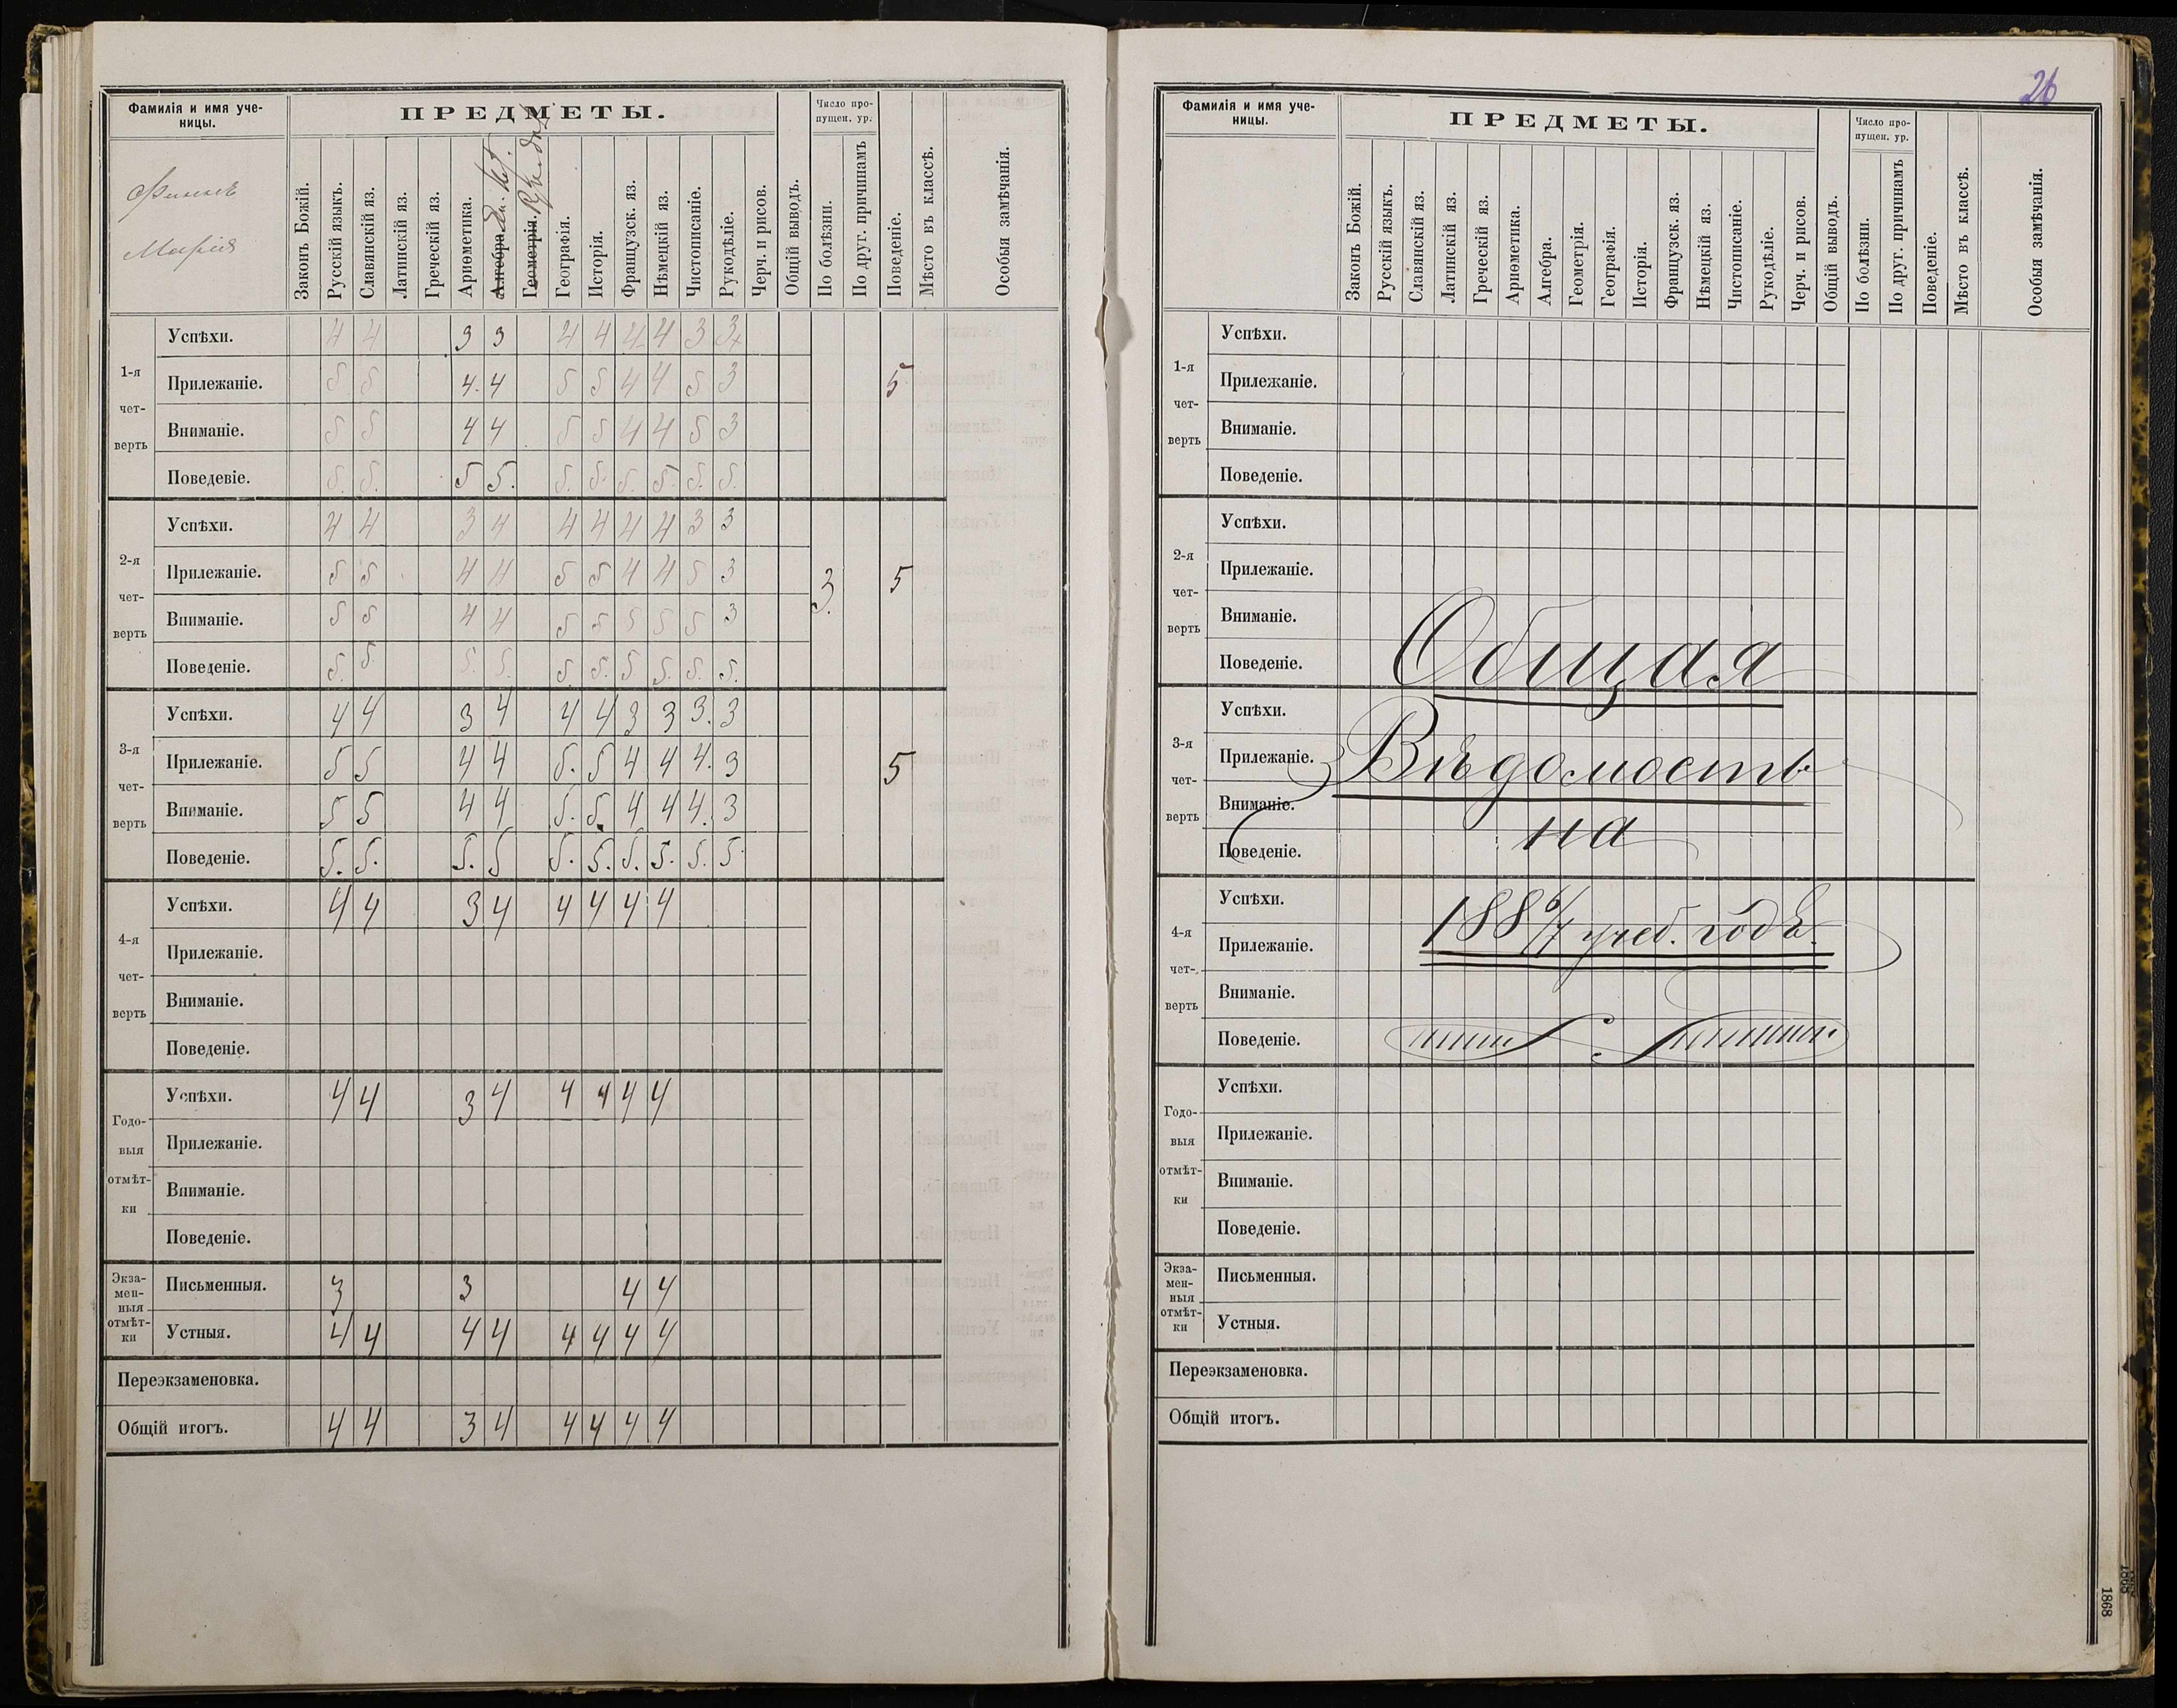 Фамилія и имя уче-
ницы.
ПРЕДМЕТЫ.
Число про-
пущен. ур.
Марія
Законъ Божій.
Русскій языкъ.
Славянскій яз.
Латинскій яз.
Греческій яз.
Ариѳметика.
Алгебра.
Геометрія.
Географія.
Исторія.
Французск. яз.
Нѣмецкій яз.
Чистописаніе.
Рукодѣліе.
Черч. и рисов.
Общій выводъ.
По болѣзни.
По друг. причинамъ
Поведеніе.
Мѣсто въ классѣ.
Особыя замѣчанія.
1-я
чет-
верть
Успѣхи. 4 4 3 3 4 4 4 4 3 3
Прилежаніе. 5 5 4. 4 5 5 4 4 5 3 5
Вниманіе. 5 5 4 4 5 5 4 4 5 3
Поведевіе. 5. 5. 5 5. 5. 5. 5. 5. 5. 5.
2-я
чет-
верть
Успѣхи. 4 4 3 4 4 4 4 4 3 3
Прилежаніе. 5 5 4 4 5 5 4 4 5 3 3. 5
Вниманіе. 5 5 4 4 5 5 5 5 5 3
Поведеніе. 5. 5 5. 5. 5 5. 5 5. 5. 5.
3-я
чет-
верть
Успѣхи. 4 4 3 4 4 4 3 3 3. 3
Прилежаніе. 5 5 4 4 5. 5 4 4 4. 3 5
Вниманіе. 5 5 4 4 5. 5. 4 4 4. 3
Поведеніе. 5. 5. 5. 5 5. 5. 5. 5. 5. 5.
4-я
чет-
верть
Успѣхи. 4 4 3 4 4 4 4 4
Прилежаніе.
Вниманіе.
Поведеніе.
Годо-
выя
отмѣт-
ки
Успѣхи. 4 4 3 4 4 4 4 4
Прилежаніе.
Вниманіе.
Поведеніе.
Экза-
мен-
ныя
отмѣт-
ки
Письменныя. 3 3 4 4
Устныя. 4 4 4 4 4 4 4 4
Переэкзаменовка.
Общій итогъ. 4 4 3 4 4 4 4 4
26
Фамилія и имя уче-
ницы.
ПРЕДМЕТЫ.
Число про-
пущен. ур.
Законъ Божій.
Русскій языкъ.
Славянскій яз.
Латинскій яз.
Греческій яз.
Ариѳметика.
Алгебра.
Геометрія.
Географія.
Исторія.
Французск. яз.
Нѣмецкій яз.
Чистописаніе.
Рукодѣліе.
Черч. и рисов.
Общій выводъ.
По болѣзни.
По друг. причинамъ
Поведеніе.
Мѣсто въ классѣ.
Особыя замѣчанія.
1-я
чет-
верть
Успѣхи.
Прилежаніе.
Вниманіе.
Поведеніе.
2-я
чет-
верть
Успѣхи.
Прилежаніе.
Вниманіе.
Поведеніе.
Общая
3-я
чет-
верть
Успѣхи.
Прилежаніе.
Вниманіе.
Поведеніе.
Вѣдомость
на
4-я
чет-
верть
Успѣхи.
Прилежаніе.
Вниманіе.
Поведеніе.
1886/7 учеб. годъ.
Годо-
выя
отмѣт-
ки
Успѣхи.
Прилежаніе.
Вниманіе.
Поведеніе.
Экза-
мен-
ныя
отмѣт-
ки
Письменныя.
Устныя.
Переэкзаменовка.
Общій итогъ.
1868